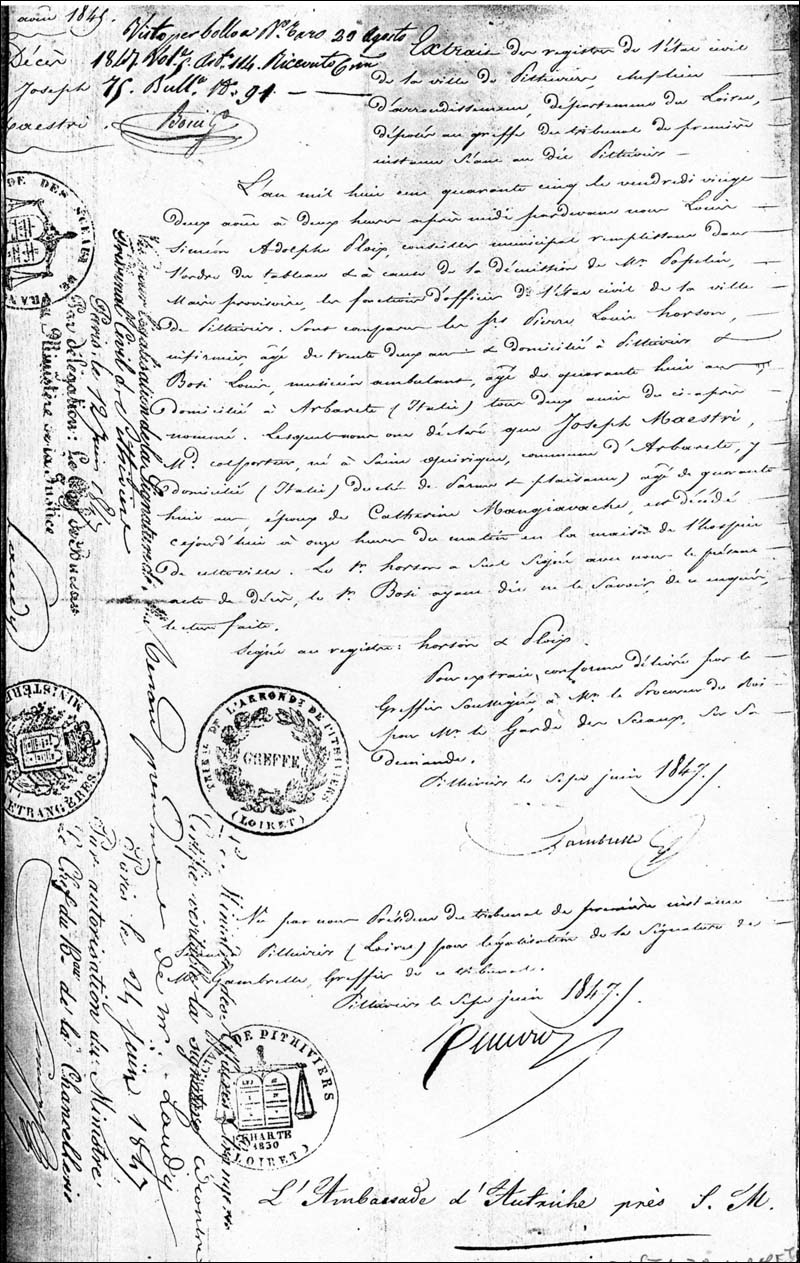 août 1845.
Décès
Joseph
Maestri.
Visto per bollo a N. Taro 20 Agosto
1847. Vol. 5. Art. 144. Ricevuto Cmi
75. Bull. 18. 91
Extrait des registres de l'état civil
de la ville de Pithiviers, chef lieu
d'arrondissement, département du Loiret,
déposés au greffe du tribunal de première
instance séant au dit Pithiviers
L'an mil huit cent quarante cinq le vendredi vingt
deux août à deux heures après midi pardevant nous Louis
Siméon Adolphe Ploix, conseiller municipal remplissant dans
l'ordre du tableau & à cause de la démission de Mr. Popelin,
Maire provisoire, les fonctions d'officier de l'état civil de la ville
de Pithiviers. Sont comparus les srs Pierre Louis horson,
infirmier, âgé de trente deux ans & domicilié à Pithiviers &
Bosi Louis, musicien ambulant, âgé de quarante huit ans
domicilié à Arbarete (Italie) tous deux amis du ci-après
nommé. Lesquels nous ont déclaré que Joseph Maestri,
Md colporteur, né à Saint quirique, commune d'Arbarete, y
domicilié (Italie) duché de Parme & plaisance) âgé de quarante
huit ans, époux de Catherine Mangiavache, est décédé
cejourd'hui à onze heures du matin en la maison de l'hospice
de cette ville. Le sr. horson a seul signé avec nous le présent
acte de décès, le sr. Bosi ayant dit ne le savoir, de ce enquis,
lecture faite.
Signé au registre: horson & Ploix.
Pour extrait conforme délivré par le
Greffier soussigné, à Mr. le Procureur du Roi
pour Mr. le Garde des Sceaux, sur sa
demande.
Pithiviers le sept juin 1847.
Lambrette
Vu par nous Président du tribunal de première instance
séant à Pithiviers (Loiret) pour légalisation de la signature de
Mr. Lambrette, Greffier de ce tribunal.
Pithiviers le sept juin 1847.
L'Ambassade d'Autriche près S. M.
Vu pour légalisation de la signature de
Tribunal Civil de Pithiviers
Paris, le 12 Juin 1847
Par délégation: Le
au Ministère de la Justice
Le Ministre des Affaires Etrangères
Certifie véritable la signature ci contre
de Mr. Laudy
Paris le 24 juin 1847
Par autorisation du Ministre
Le Chef du Bau de la Chancellerie
DES SCEAUX DE
MINISTÈRE
ETRANGÈRES
TRIB. DE L'ARROND. DE PITHIVIERS
GREFFE
(LOIRET)
DE PITHIVIERS
CHARTE
1830
(LOIRET)